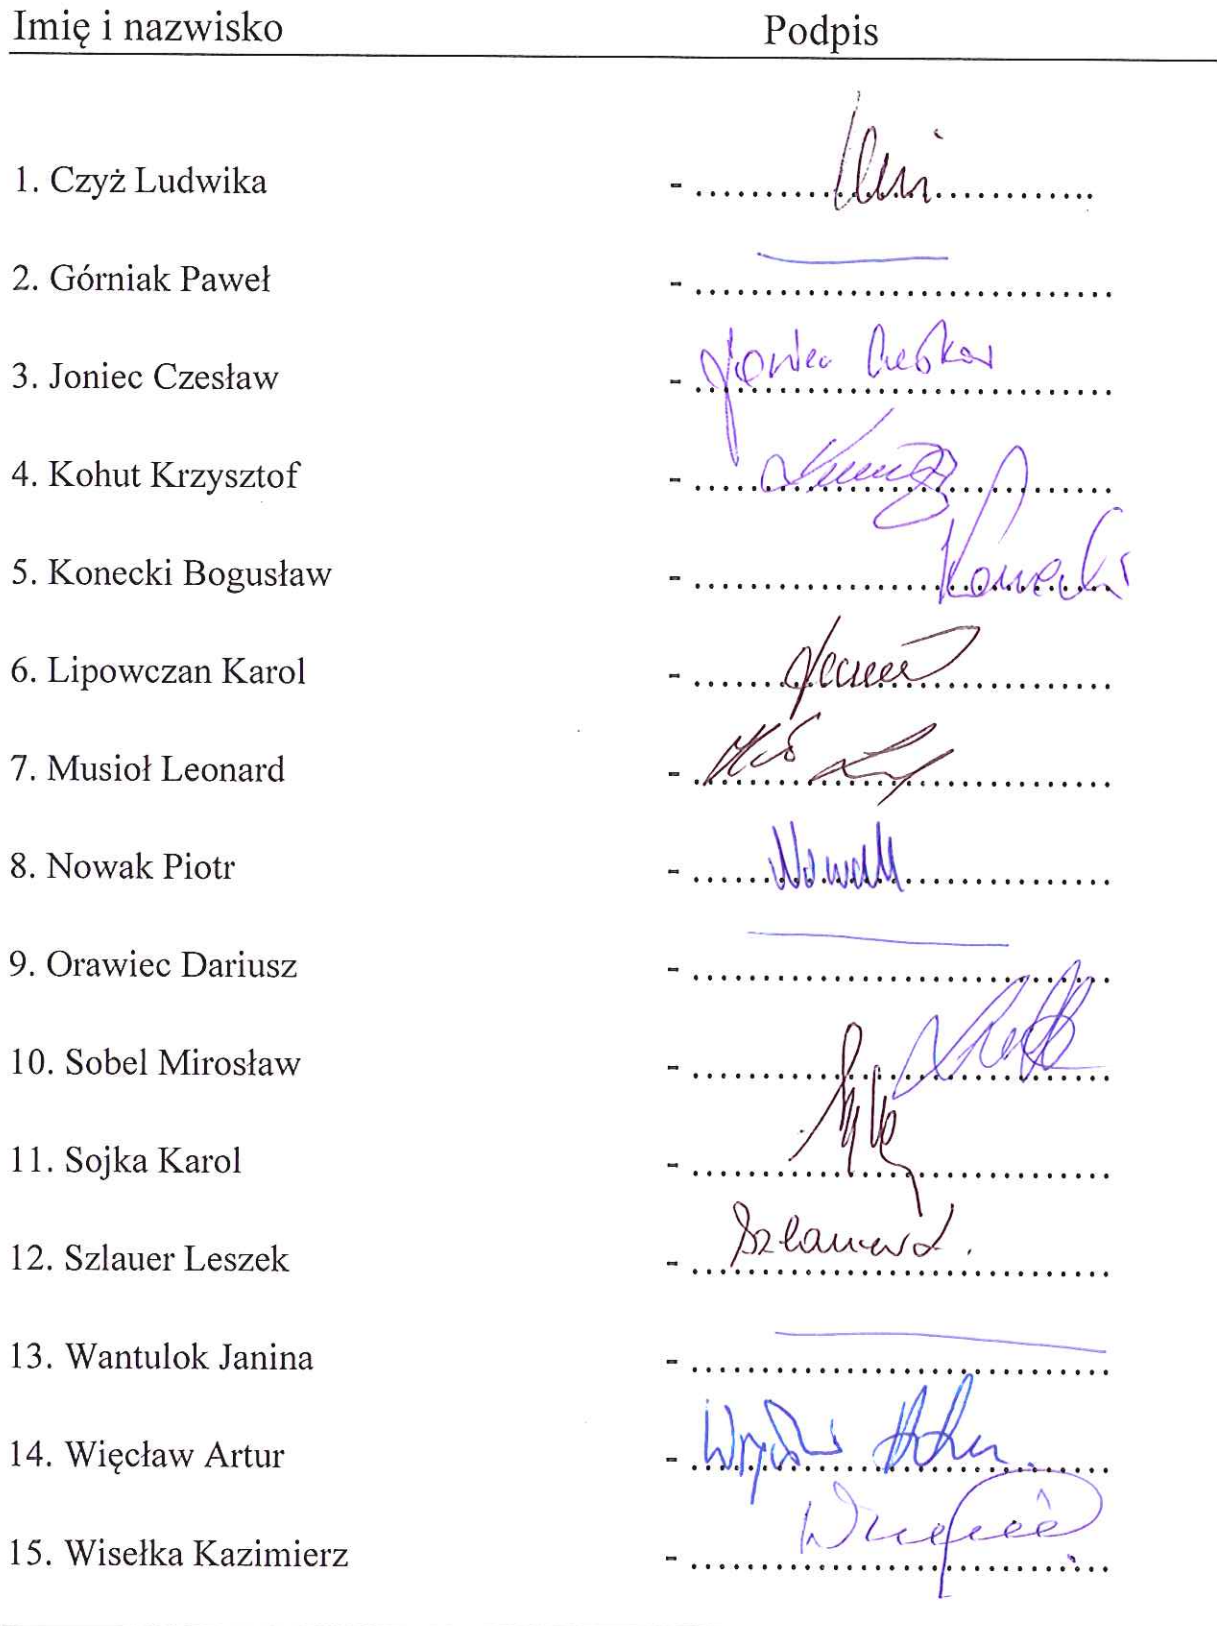 Imię i nazwisko Podpis
1. Czyż Ludwika - ..............................
2. Górniak Paweł - ..............................
3. Joniec Czesław - Joniec Czesław
4. Kohut Krzysztof - ..............................
5. Konecki Bogusław - .................... Konecki
6. Lipowczan Karol - ..............................
7. Musioł Leonard - ..............................
8. Nowak Piotr - ...... Nowak ...............
9. Orawiec Dariusz - ..............................
10. Sobel Mirosław - ..............................
11. Sojka Karol - ..............................
12. Szlauer Leszek - Szlauer L.
13. Wantulok Janina - ..............................
14. Więcław Artur - ..............................
15. Wisełka Kazimierz - ..............................